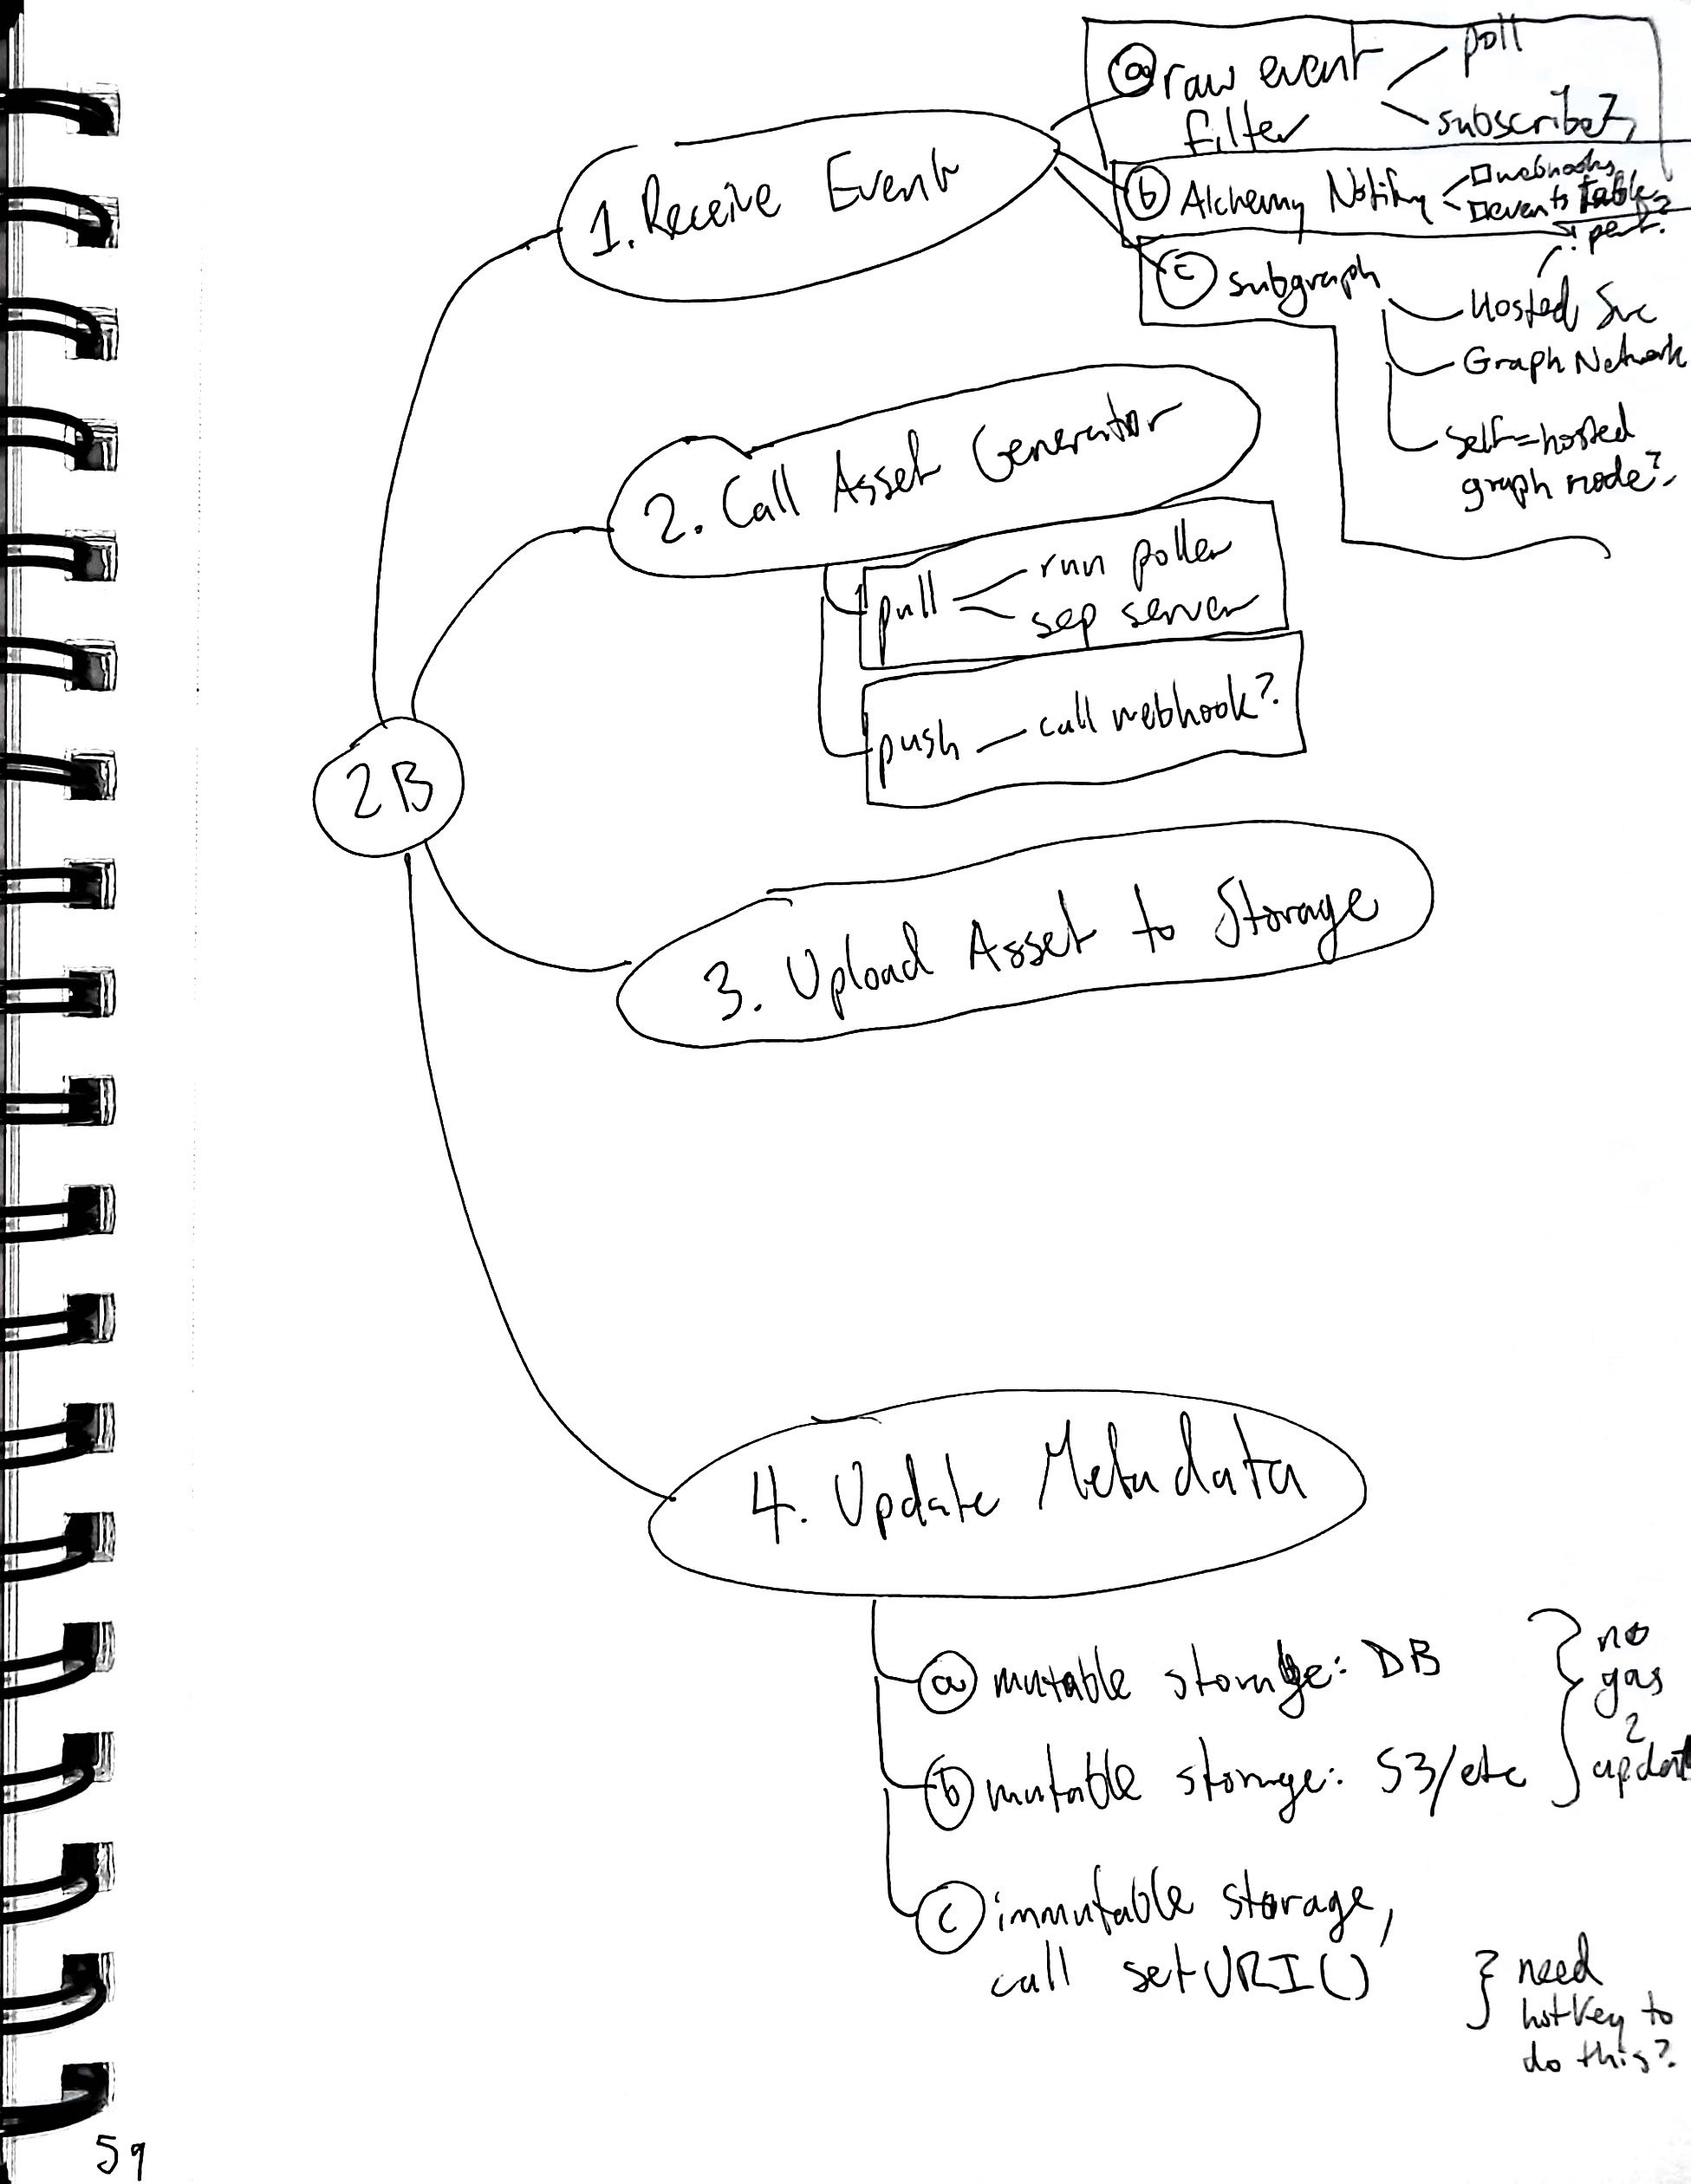 a raw event
filter
poll
subscribe?
1. Receive Event
b Alchemy Notify
webhooks
events table?
perf.
c subgraph
Hosted Svc
Graph Network
self-hosted
graph node?
2. Call Asset Generator
pull
run poller
sep server
push — call webhook?
2B
3. Upload Asset to Storage
4. Update Metadata
a mutable storage: DB
b mutable storage: S3/etc
no
gas
2
updat
c immutable storage,
call setURI()
need
hotkey to
do this?
59